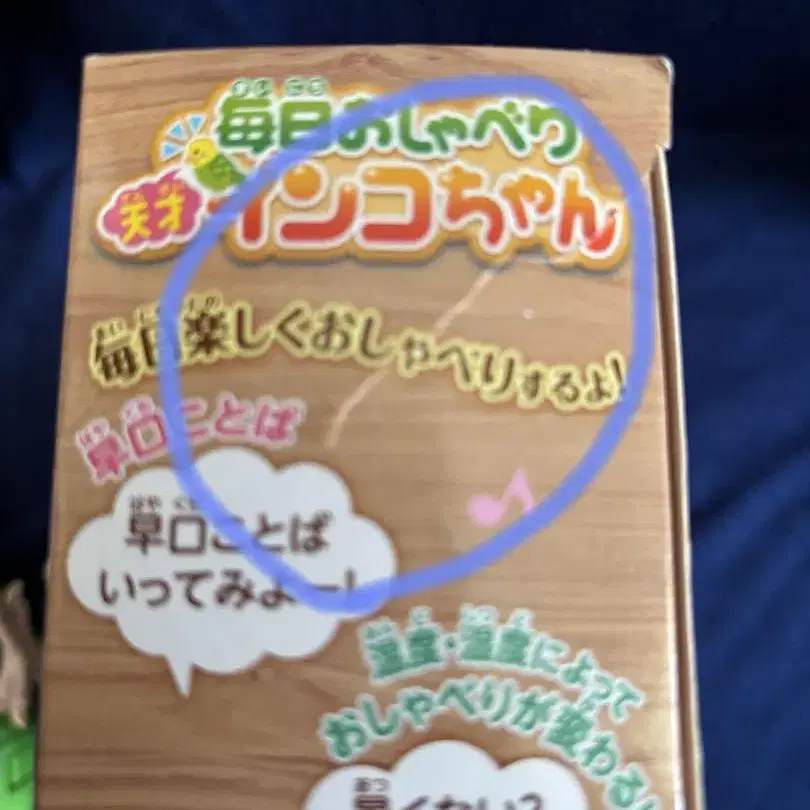 毎日おしゃべり
天才インコちゃん
毎日楽しくおしゃべりするよ!
早口ことば
早口ことば
いってみよー!
温度・湿度によって
おしゃべりが変わる!
暑くない?